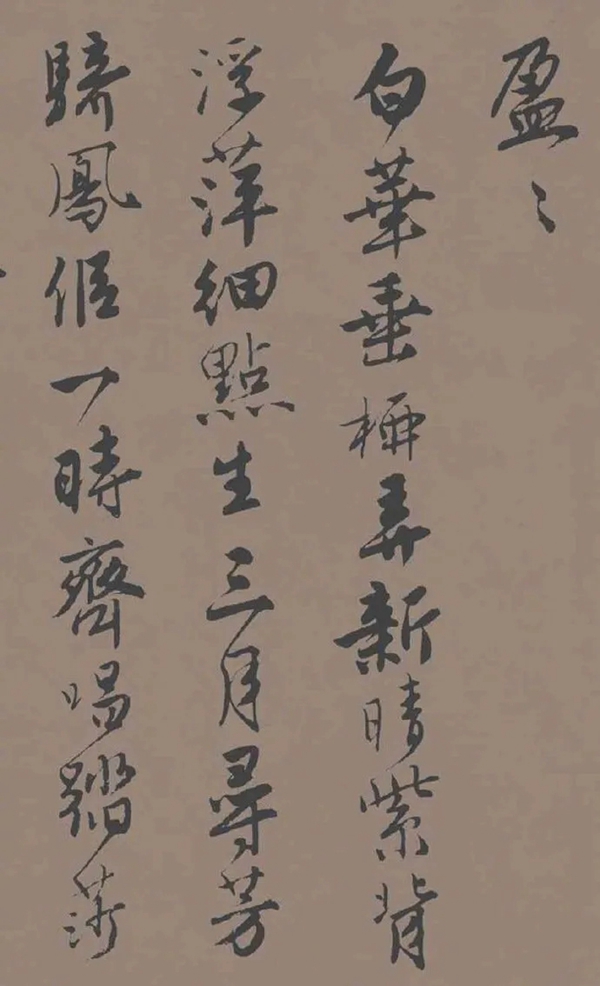 盈〻
白華垂柳弄新晴紫背
浮萍細點生三月尋芳
騎鳳侶一時齊唱踏莎